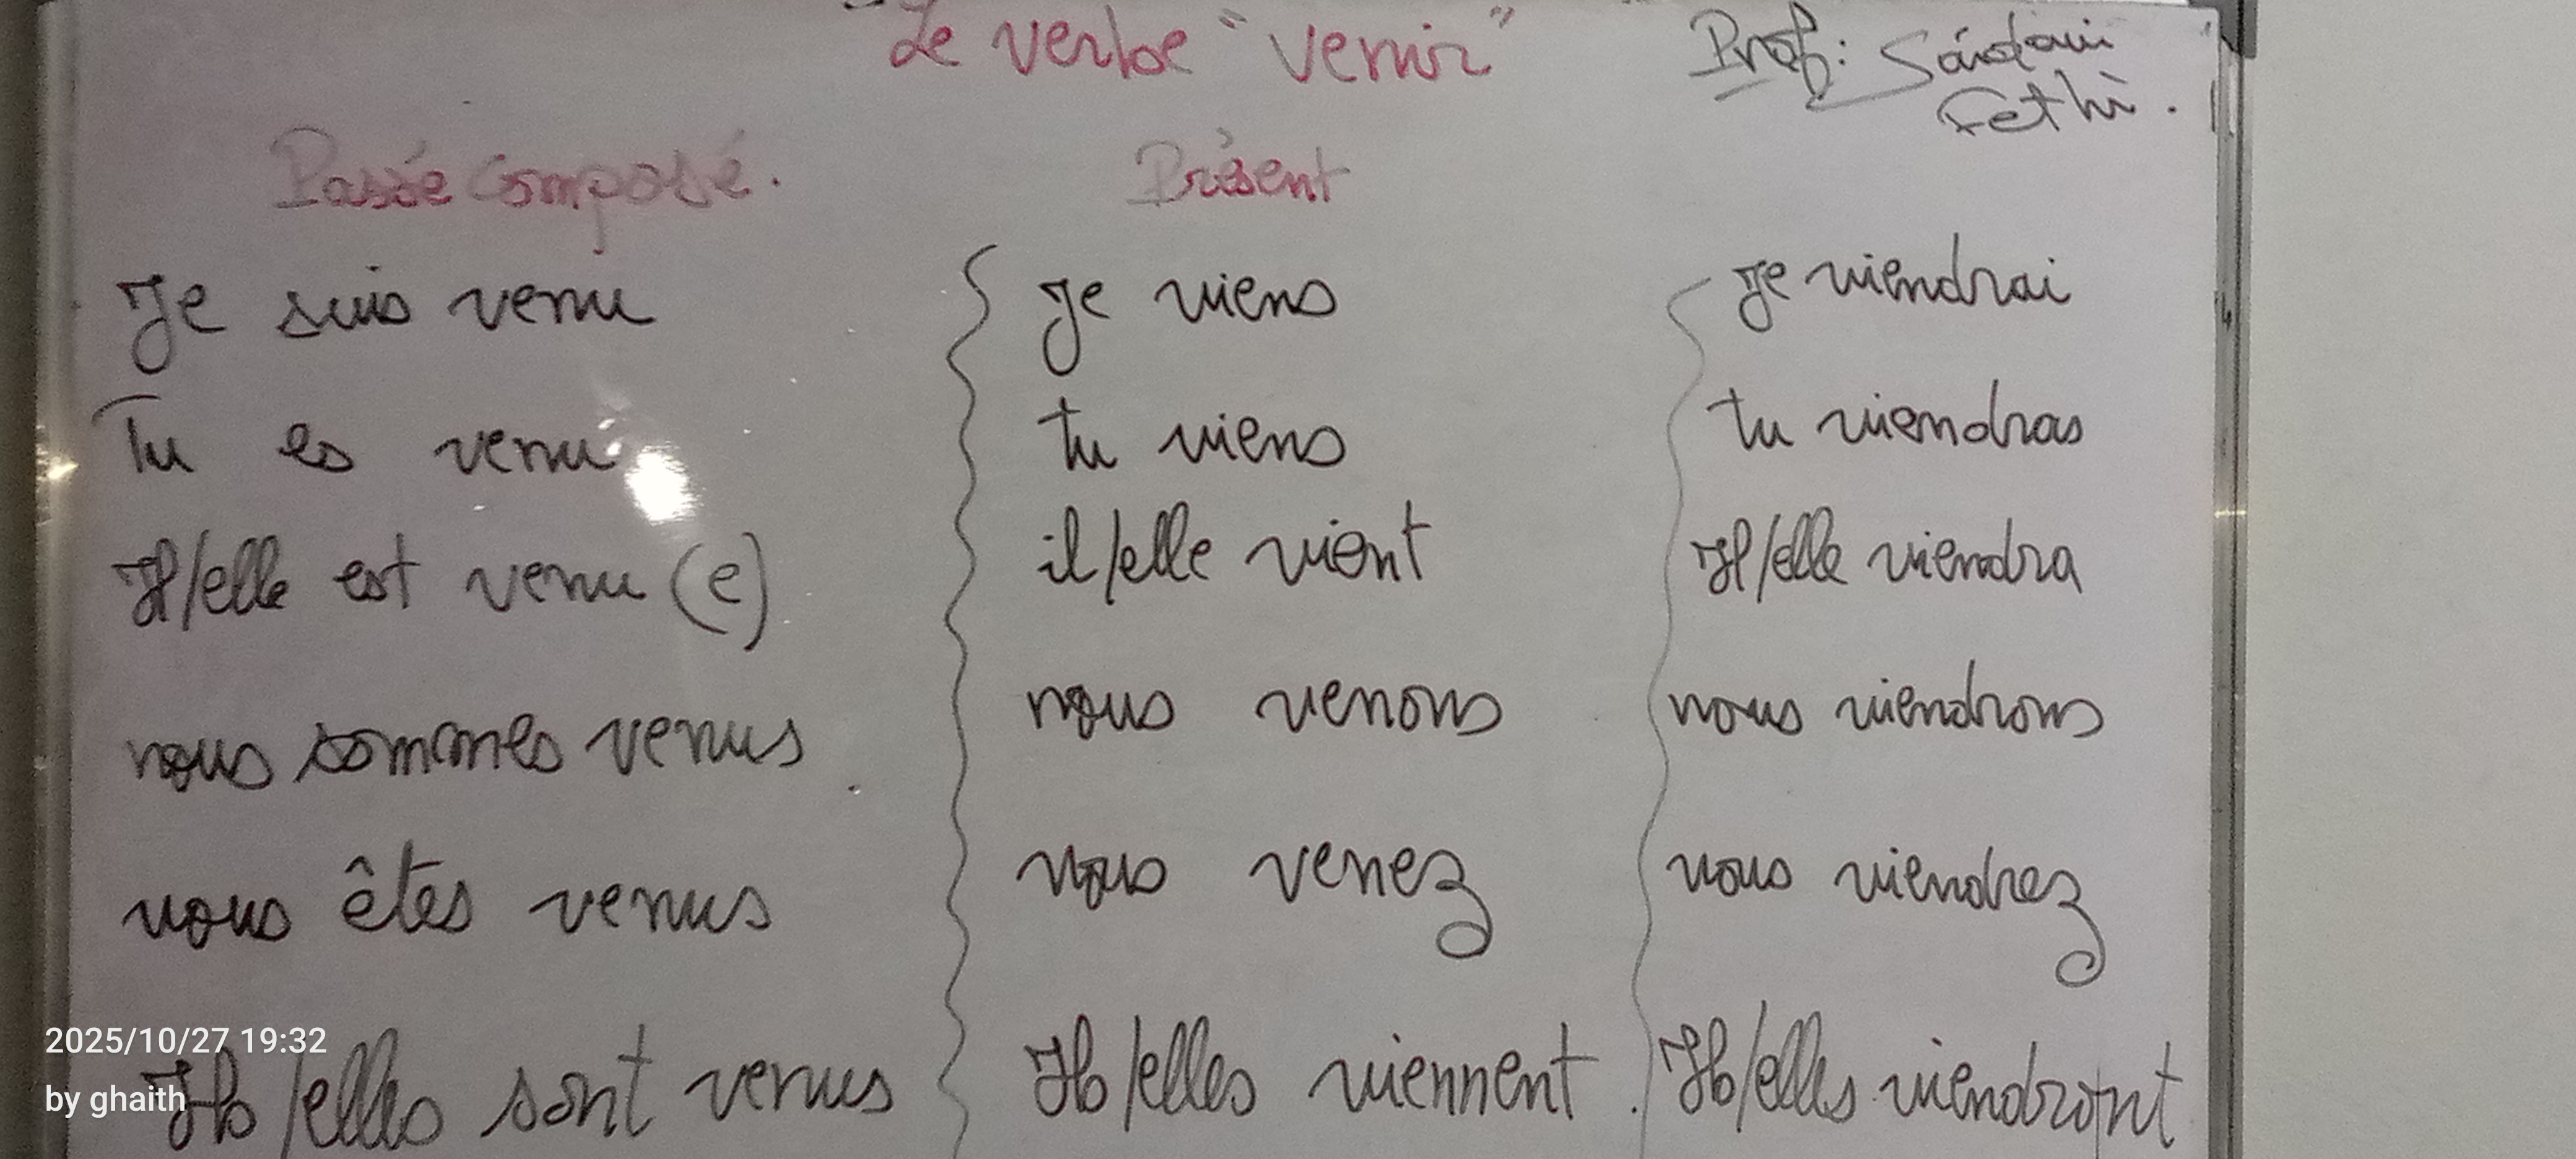 Le verbe "venir"
Prof: Saïdani
Fethi.
Passée composé.
Je suis venu
Tu es venu
Il/elle est venu(e)
nous sommes venus
vous êtes venus
Ils/elles sont venus
Présent
je viens
tu viens
il/elle vient
nous venons
vous venez
Ils/elles viennent
je viendrai
tu viendras
Il/elle viendra
nous viendrons
vous viendrez
Ils/elles viendront
2025/10/27 19:32
by ghaith